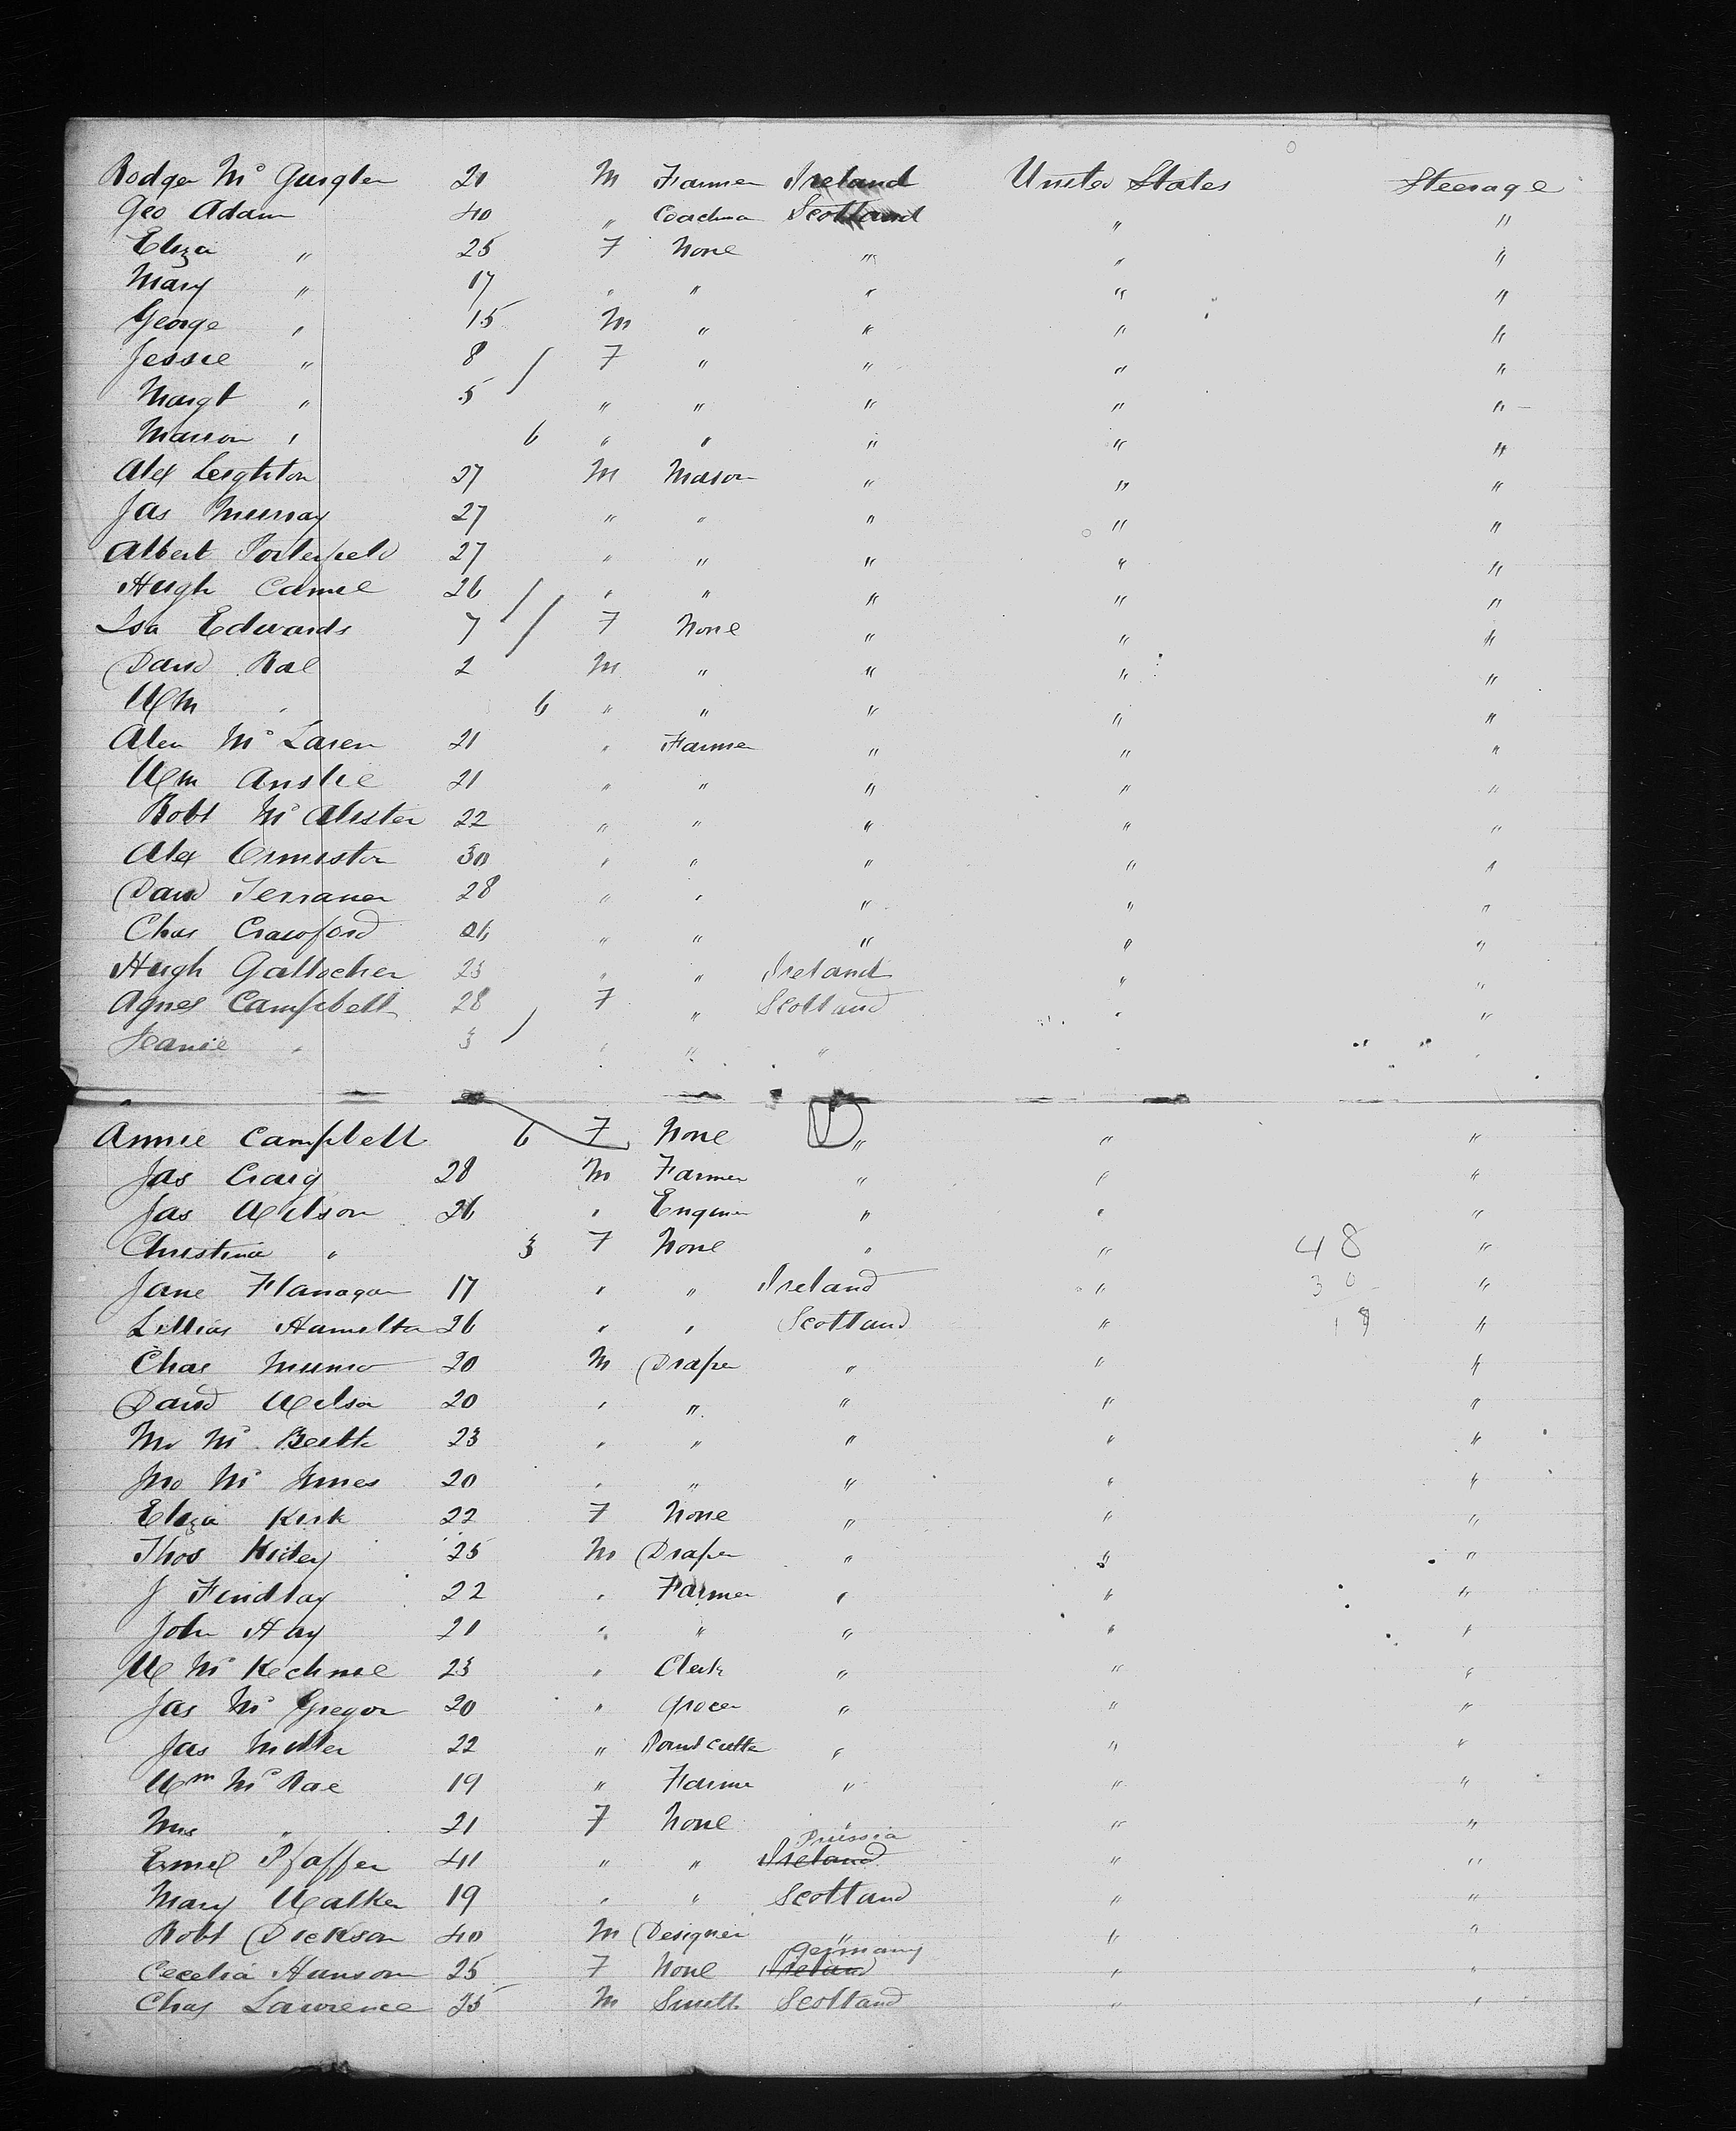 Rodger Mc Gurgler 20 M Farmer Ireland United States Steerage
Geo Adam 40 " Coachma Scotland " "
Eliza " 25 F None " " "
Mary " 17 " " " " "
George " 15 M " " " "
Jessie " 8 F " " " "
Margt " 5 " " " " "
Marion " 6 " " " " "
Alex Leighton 27 M Mason " " "
Jas Murray 27 " " " " "
Albert Porterfield 27 " " " " "
Hugh Camie 26 " " " " "
Isa Edwards 7 F None " " "
David Rae 2 M " " " "
Wm " 6 " " " " "
Alex Mc Laren 21 " Farmer " " "
Wm Anstie 21 " " " " "
Robt Mc Alister 22 " " " " "
Alex Ormiston 30 " " " " "
David 28 " " " " "
Chas Crawford 26 " " " " "
Hugh Gallocher 23 " " Ireland " "
Agnes Campbell 28 F " Scotland " "
Jeanie " 3 " " " " "
Annie Campbell 6 F None " " "
Jas Craig 28 M Farmer " " "
Jas Wilson 26 " Engineer " " "
Christina " 3 F None " " 48 "
Jane Flanagan 17 " " Ireland " 30 "
Lillias Hamilton 26 " " Scotland " 18 "
Chas Munro 20 M Draper " " "
David Wilson 20 " " " " "
Mc 23 " " " " "
Jno Mc Innes 20 " " " " "
Eliza Kirk 22 F None " " "
Thos 25 M Draper " " "
J Findlay 22 " Farmer " " "
John Hay 21 " " " " "
W Mc Kechnie 23 " Clerk " " "
Jas Mc Gregor 20 " Grocer " " "
Jas Miller 22 " " " "
Wm Mc Rae 19 " Farmer " " "
Mrs " 21 F None " " "
Prussia
Emel Pfaffer 41 " " Ireland " "
Mary Walker 19 " " Scotland " "
Robt Dickson 40 M Designer " " "
Germany
Cecelia Hanson 25 F None Ireland " "
Chas Lawrence 35 M Smith Scotland " "